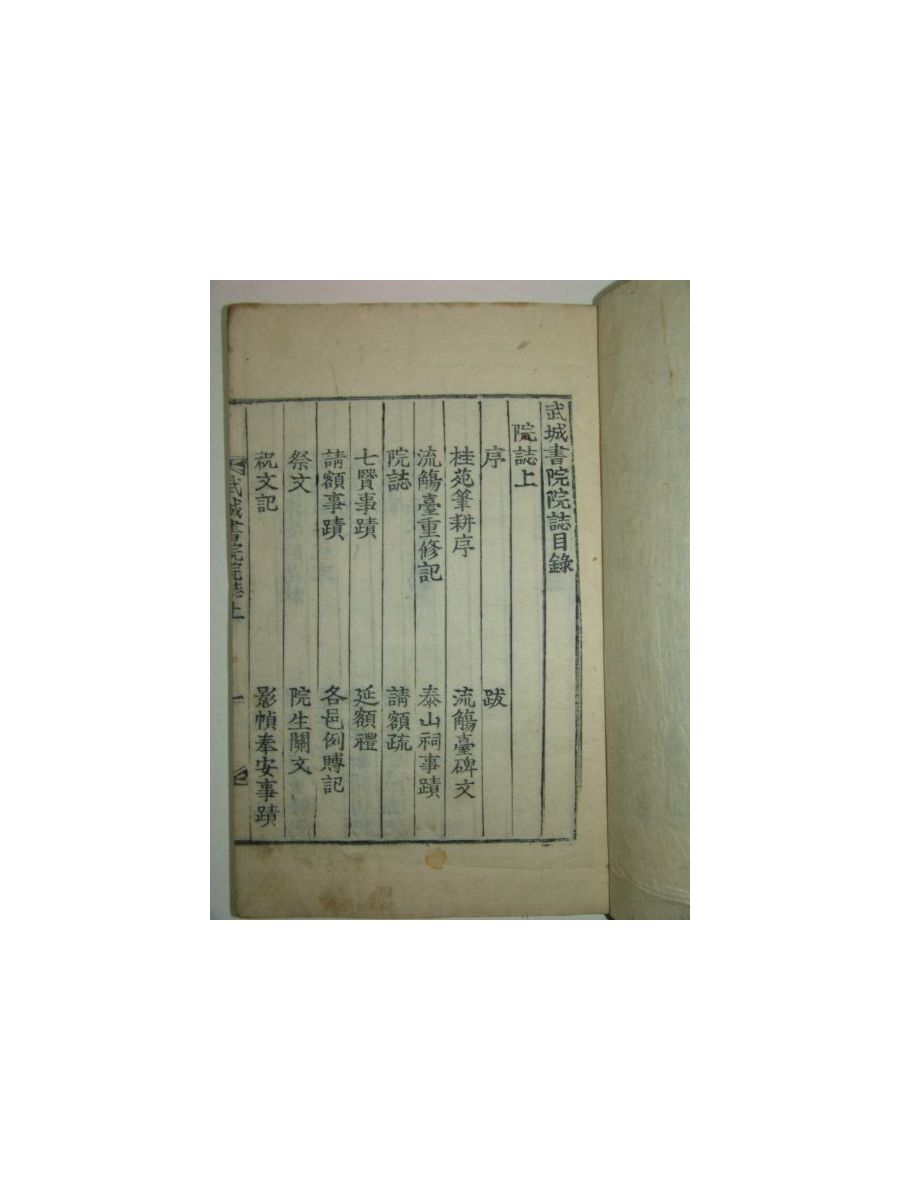 武城書院院誌目錄
院誌上
序 跋
桂苑筆耕序 流觴臺碑文
流觴臺重修記 泰山祠事蹟
院誌 請額疏
七賢事蹟 延額禮
請額事蹟 各邑例賻記
祭文 院生關文
祝文記 影幀奉安事蹟
武城書院院誌上 一